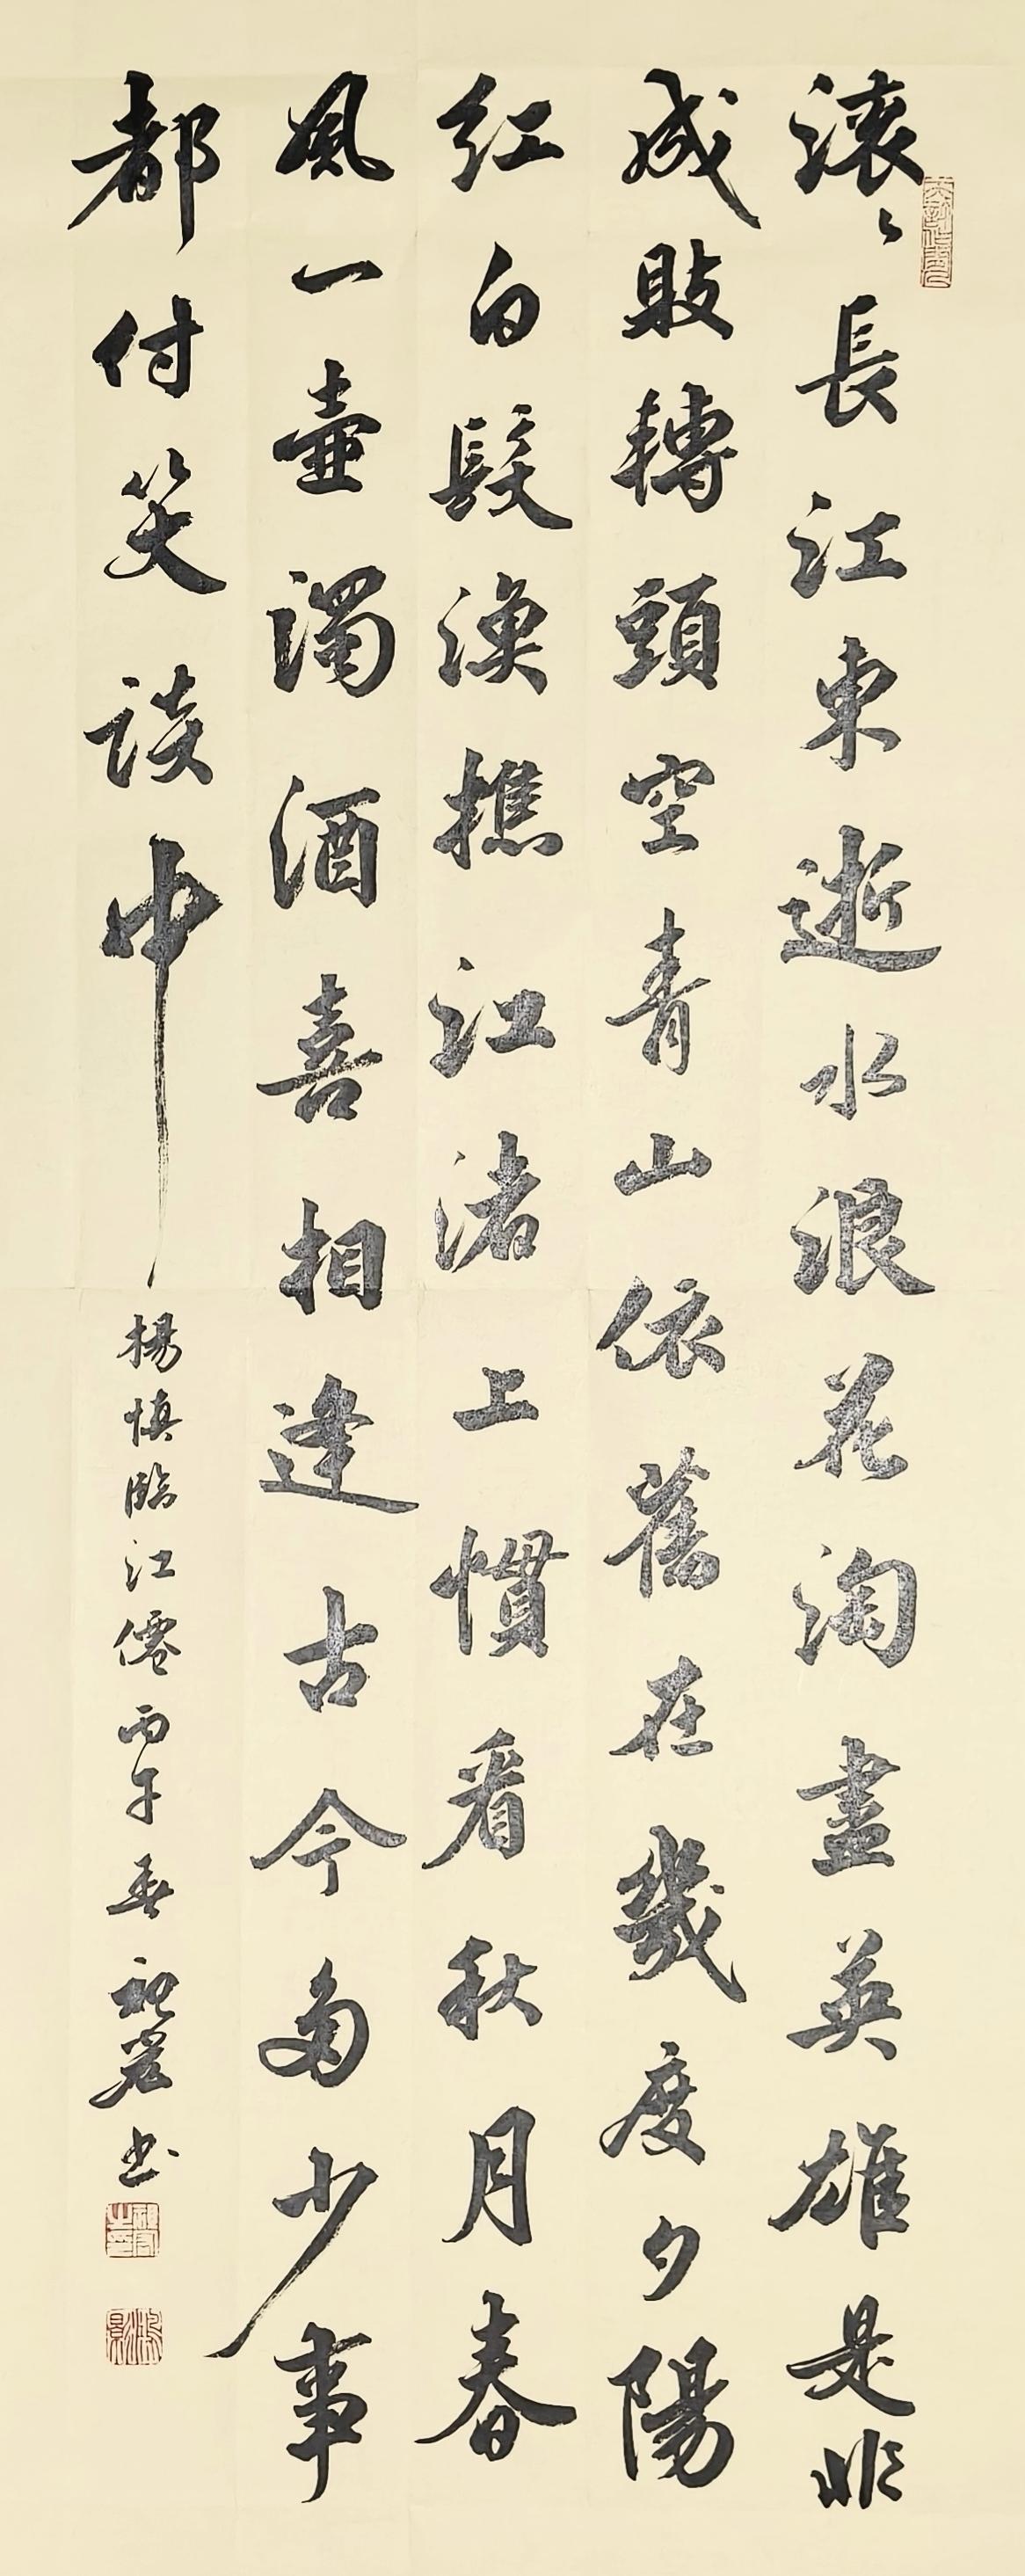 滚〻長江東逝水浪花淘盡英雄是非
成敗轉頭空青山依舊在幾度夕陽
紅白髮漁樵江渚上慣看秋月春
風一壺濁酒喜相逢古今多少事
都付笑談中
楊慎臨江僊丙午春祝岩书